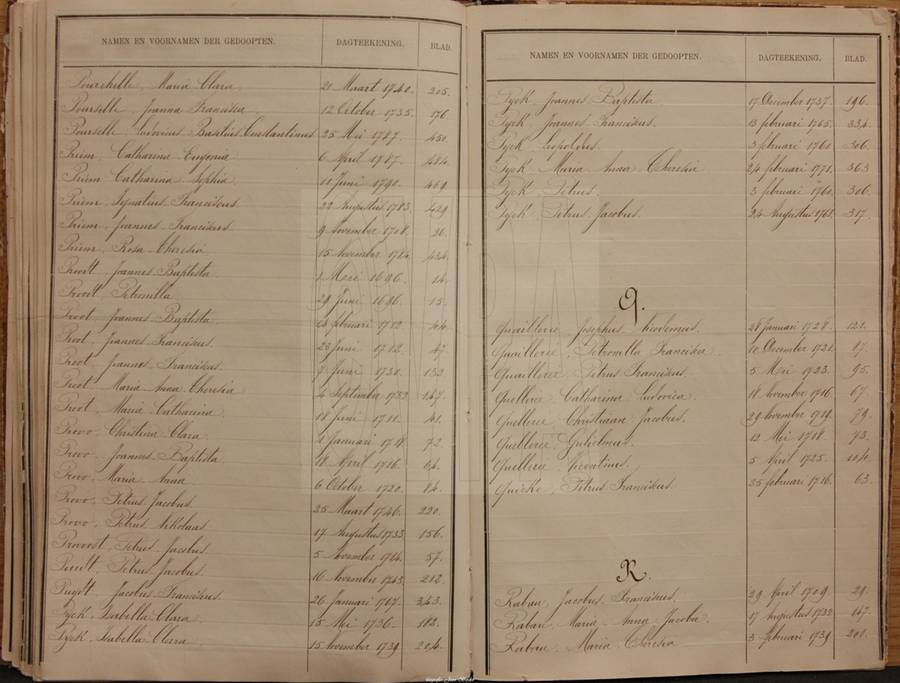 NAMEN EN VOORNAMEN DER GEDOOPTEN. DAGTEEKENING. BLAD.
Pourchelle, Maria Clara 21 Maart 1740. 205.
Pourselle Joanna Francisca 12 October 1735. 176.
Pourselle Ludovicus Basilius Constantinus 25 Mei 1787. 450.
Priem, Catharina Eugenia 6 April 1787. 484.
Priem Catharina Sophia 11 Juni 1790. 469.
Priem, Ignatius Franciscus 22 Augustus 1783. 429.
Priem, Joannes Franciscus 9 November 1708. 26.
Priem, Rosa Theresia 15 November 1784. 434.
Proodt, Joannes Baptista 1 Mei 1696. 14.
Proodt, Petronilla 29 Juni 1696. 15.
Proot Joannes Baptista februari 1712 44.
Proot, Joannes Franciscus 23 Juni 1712. 47
Proot, Joannes Franciscus. 7 Juni 1730. 132
Proot Maria Anna Theresia 4 September 1732 147.
Proot, Maria Catharina 11 Juni 1711. 41.
Provo Christina Clara 1 Januari 1718. 72.
Provo, Joannes Baptista 18 April 1716. 64.
Provo, Maria Anna 6 October 1720. 84.
Provo, Petrus Jacobus 25 Maart 1746. 220.
Provo, Petrus Nikolaus 17 Augustus 1733 156.
Provoost, Petrus Jacobus 5 November 1714. 57.
Petrus Jacobus. 16 November 1743. 212.
Jacobus Franciscus. 26 Januari 1767. 343.
Pyck, Isabella Clara 15 Mei 1736. 182.
Pyck, Isabella Clara 15 November 1739. 204.
NAMEN EN VOORNAMEN DER GEDOOPTEN. DAGTEEKENING. BLAD.
Pyck Joannes Baptista 17 December 1737. 196.
Pyck, Joannes Franciscus. 13 februari 1765. 334.
Pyck Leopoldus. 3 februari 1760 306.
Pyck Maria Anna Theresia 24 februari 1771. 363
Pyck Petrus. 3 februari 1760. 306.
Pyck Petrus Jacobus. 24 Augustus 1761. 317.
Q.
Quaillerie, Josephus Nicodemus. 28 Januari 1728. 121.
Quaillerie, Petronilla Francisca 10 December 1721. 87.
Quaillerie Petrus Franciscus 5 Mei 1723. 95.
Quellerie Catharina Ludovica. 18 November 1716. 67.
Quellerie, Christiaan Jacobus. 29 November 1719. 79.
Quellerie, Gulielmus. 12 Mei 1718. 73.
Quellerie, 5 April 1725. 104.
Quicke, Petrus Franciscus. 25 februari 1716. 63.
R.
Raban, Jacobus Franciscus 29 April 1709. 29.
Raban, Maria Anna Jacoba. 17 Augustus 1732 147.
Raban, Maria Theresia 3 februari 1739 201.